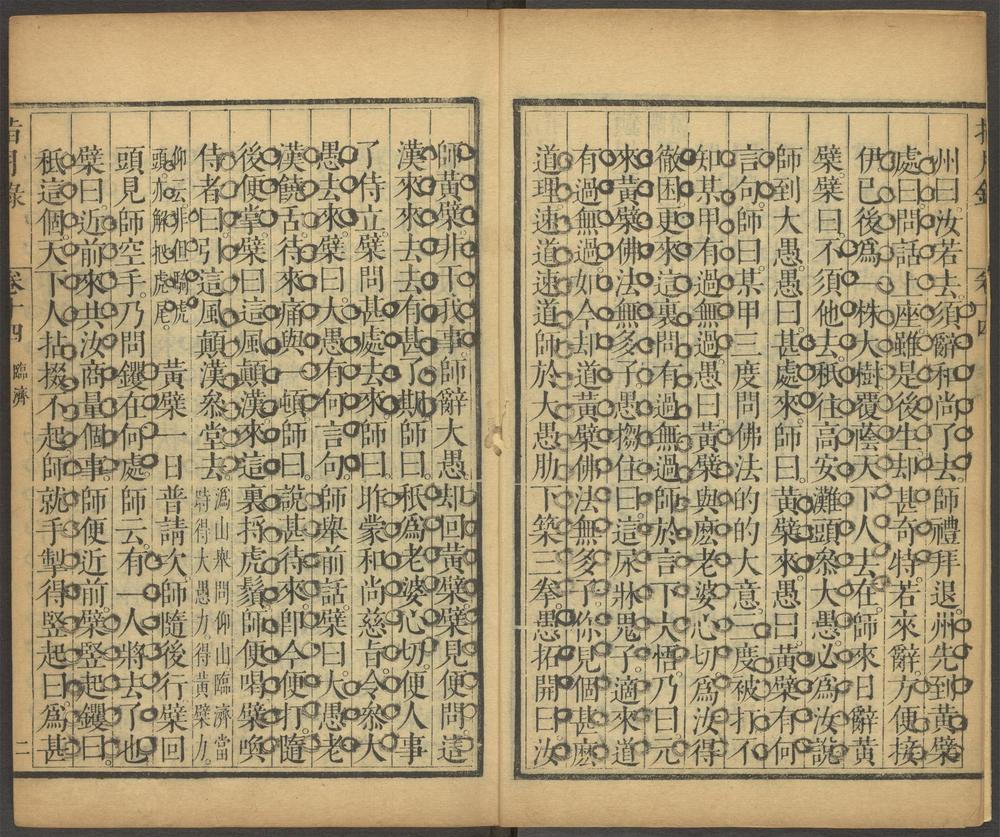 州曰汝若去須辭和尚了去師禮拜退州先到黃檗
處曰問話上座雖是後生却甚奇特若來辭方便接
伊已後爲一株大樹覆蔭天下人去在師來日辭黃
檗檗曰不須他去秖往高安灘頭叅大愚必爲汝說
師到大愚愚曰甚處來師曰黃檗來愚曰黃檗有何
言句師曰某甲三度問佛法的的大意三度被打不
知某甲有過無過愚曰黃檗與麽老婆心切爲汝得
徹困更來這裏問有過無過師於言下大悟乃曰元
來黃檗佛法無多子愚搊住曰這尿牀鬼子適來道
有過無過如今却道黃檗佛法無多子你見個甚麽
道理速道速道師於大愚肋下築三拳愚拓開曰汝
師黃檗非干我事師辭大愚却回黃檗檗見便問這
漢來來去去有甚了期師曰秖爲老婆心切便人事
了侍立檗問甚處去來師曰昨蒙和尚慈旨令叅大
愚去來檗曰大愚有何言句師舉前話檗曰大愚老
漢饒舌待來痛與一頓師曰說甚待來即今便打隨
後便掌檗曰這風顛漢來這裏捋虎鬚師便喝檗喚
侍者曰引這風顛漢叅堂去
溈山舉問仰山臨濟當
時得大愚力得黃檗力
仰云非但騎虎
頭亦解把虎尾
黃檗一日普請次師隨後行檗回
頭見師空手乃問钁在何處師云有一人將去了也
檗曰近前來共汝商量個事師便近前檗竪起钁曰
秖這個天下人拈掇不起師就手掣得竪起曰爲甚
指月錄 卷十四 臨濟 二